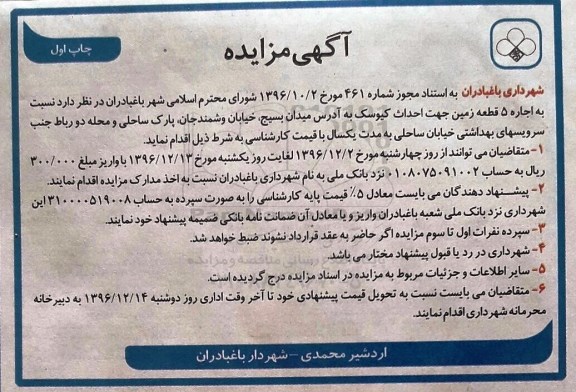 آگهی مزایده
چاپ اول
شهرداری باغبادران به استناد مجوز شماره ۴۶۱ مورخ ۱۳۹۶/۱۰/۲ شورای محترم اسلامی شهر باغبادران در نظر دارد نسبت
به اجاره ۵ قطعه زمین جهت احداث کیوسک به آدرس میدان بسیج، خیابان وشمندجان، پارک ساحلی و محله دو رباط جنب
سرویسهای بهداشتی خیابان ساحلی به مدت یکسال با قیمت کارشناسی به شرط ذیل اقدام نماید.
۱- متقاضیان می توانند از روز چهارشنبه مورخ ۱۳۹۶/۱۲/۲ لغایت روز یکشنبه مورخ ۱۳۹۶/۱۲/۱۳ با واریز مبلغ ۳۰۰/۰۰۰
ریال به حساب ۰۱۰۸۰۷۵۰۹۱۰۰۲ نزد بانک ملی به نام شهرداری باغبادران نسبت به اخذ مدارک مزایده اقدام نمایند.
۲- پیشنهاد دهندگان می بایست معادل ۵٪ قیمت پایه کارشناسی را به صورت سپرده به حساب ۳۱۰۰۰۰۵۱۹۰۰۸ این
شهرداری نزد بانک ملی شعبه باغبادران واریز و یا معادل آن ضمانت نامه بانکی ضمیمه پیشنهاد خود نمایند.
۳- سپرده نفرات اول تا سوم مزایده اگر حاضر به عقد قرارداد نشوند ضبط خواهد شد.
۴- شهرداری در رد یا قبول پیشنهاد مختار می باشد.
۵- سایر اطلاعات و جزئیات مربوط به مزایده در اسناد مزایده درج گردیده است.
۶- متقاضیان می بایست نسبت به تحویل قیمت پیشنهادی خود تا آخر وقت اداری روز دوشنبه ۱۳۹۶/۱۲/۱۴ به دبیرخانه
محرمانه شهرداری اقدام نمایند.
اردشیر محمدی - شهردار باغبادران